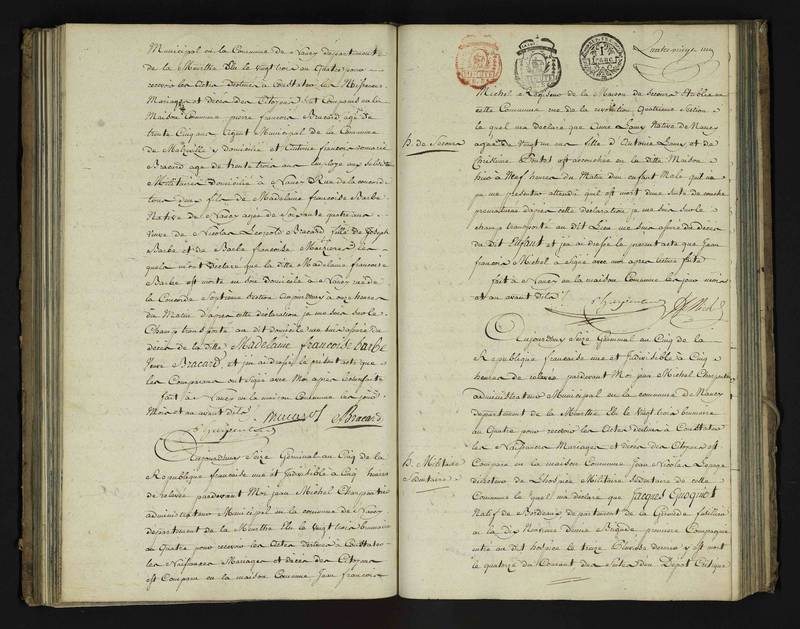 Municipal en la Commune de Nancy département
de la Meurthe élu le vingt trois au Quatre pour
recevoir les Actes destinés à Constater les Naissances
Mariages et décès des Citoyens Est Comparus en la
Maison Commune pierre francois Bracard agé de
trente Cinq ans Agent Municipal de la Commune
de Malzéville y domicilié et Antoine francois
Bracard agé de trente trois ans Employé aux
Militaires domicilié à Nancy Rue de la
fils de Madelaine francoise Barbe
Native de Nancy agée de Soixante quatre ans
Veuve de Nicolas Léopold Bracard fille de Joseph
Barbe et de Barbe francoise
quels m'ont déclaré que la ditte Madelaine francoise
Barbe est morte en son domicile à Nancy rue de
la Concorde Septieme Section Cejourd'huy à onze heures
du Matin d'après cette déclaration je me suis sur le
Champ transporté au dit domicile me suis assuré du
décès de la ditte Madelaine francoise barbe
Veuve Bracard et j'en ai dressé le présent acte que
les Comparans ont Signé avec Moi après lecture faite
fait à Nancy en la maison Commune les jour
Mois et an avant dits
Bracard
Aujourd'huy Seize Germinal an Cinq de la
République francaise une et Indivisible à Cinq heures
de relevée pardevant Moi jean Michel Charpentier
administrateur Municipal en la commune de Nancy
département de la Meurthe élu le vingt trois brumaire
an Quatre pour recevoir les Actes destinés à Constater
les Naissances Mariages et décès des Citoyens
est Comparu en la maison Commune Jean francois
Michel Régisseur de la Maison de Secours établie en
cette Commune rue de la révolution Quatrieme Section
le quel m'a déclaré que Anne Louis Native de Nancy
h. de Secours
agée de vingt un ans fille d'Antoine Louis et de
Christine est accouchée en la ditte Maison
hier à Neuf heures du Matin d'un enfant Male qui n'a
pu me présenter attendu qu'il est mort d'une suite de couche
prématurée d'après cette déclaration je me suis sur le
champ transporté au dit Lieu me suis assuré du décès
du dit Enfant et j'en ai dressé le présent acte que Jean
francois Michel a Signé avec moi après lecture faite
fait à Nancy en la maison Commune les jour mois
et an avant dits
Aujourd'huy Seize Germinal an Cinq de la
République francaise une et Indivisible à Cinq
heures de relevée pardevant Moi jean Michel Charpentier
administrateur Municipal en la commune de Nancy
département de la Meurthe élu le vingt trois brumaire
an Quatre pour recevoir les Actes destinés à Constater
les Naissances Mariages et décès des Citoyens est
h. Militaire
Comparu en la maison Commune Jean Nicolas Lepage
Sédentaire
directeur de l'hospice Militaire Sédentaire de cette
Commune le quel m'a déclaré que Jacques
Natif de Bordeaux département de la Gironde fusillier
en la dix Neuvieme Demie Brigade premiere Compagnie
entré au dit hospice le treize Pluviose dernier y est mort
le quatorze du Courant des Suites d'un Dépot Critique